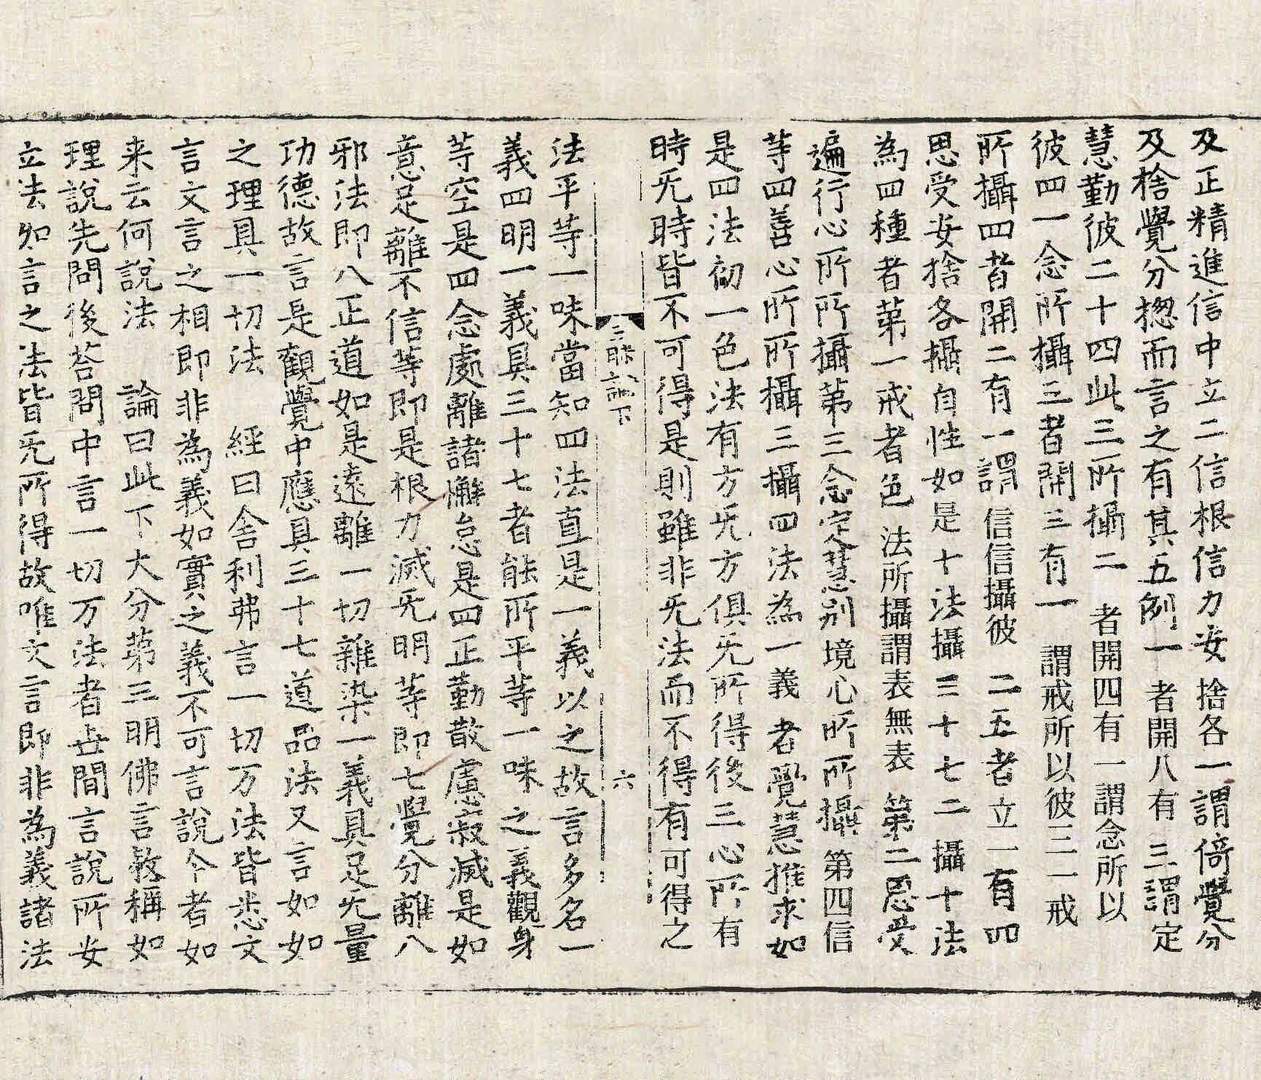 及正精進信中立二信根信力安捨各一謂倚覺分
及捨覺分揔而言之有其五例一者開八有三謂定
慧勤彼二十四此三所攝二者開四有一謂念所以
彼四一念所攝三者開三有一謂戒所以彼三一戒
所攝四者開二有一謂信信攝彼二五者立一有四
思受安捨各攝自性如是十法攝三十七二攝十法
為四種者苐一戒者色法所攝謂表無表第二思受
遍行心所所攝苐三念定慧別境心所所攝第四信
䓁四善心所所攝三攝四法為一義者覺慧推求如
是四法初一色法有方无方俱无所得後三心所有
時无時皆不可得是則雖非无法而不得有可得之
三昧論下 六
法平䓁一味當知四法直是一義以之故言多名一
義四明一義具三十七者能所平等一味之義觀身
䓁空是四念處離諸懈怠是四正勤散慮寂滅是如
意足離不信䓁即是根力滅无明等即七覺分離八
邪法即八正道如是遠離一切雜染一義具足无量
功德故言是觀覺中應具三十七道品法又言如如
之理具一切法 經曰舍利弗言一切万法皆悉文
言文言之相即非為義如實之義不可言說今者如
来云何說法 論曰此下大分苐三明佛言教稱如
理說先問後荅問中言一切万法者世間言說所安
立法如言之法皆无所得故唯文言即非為義諸法